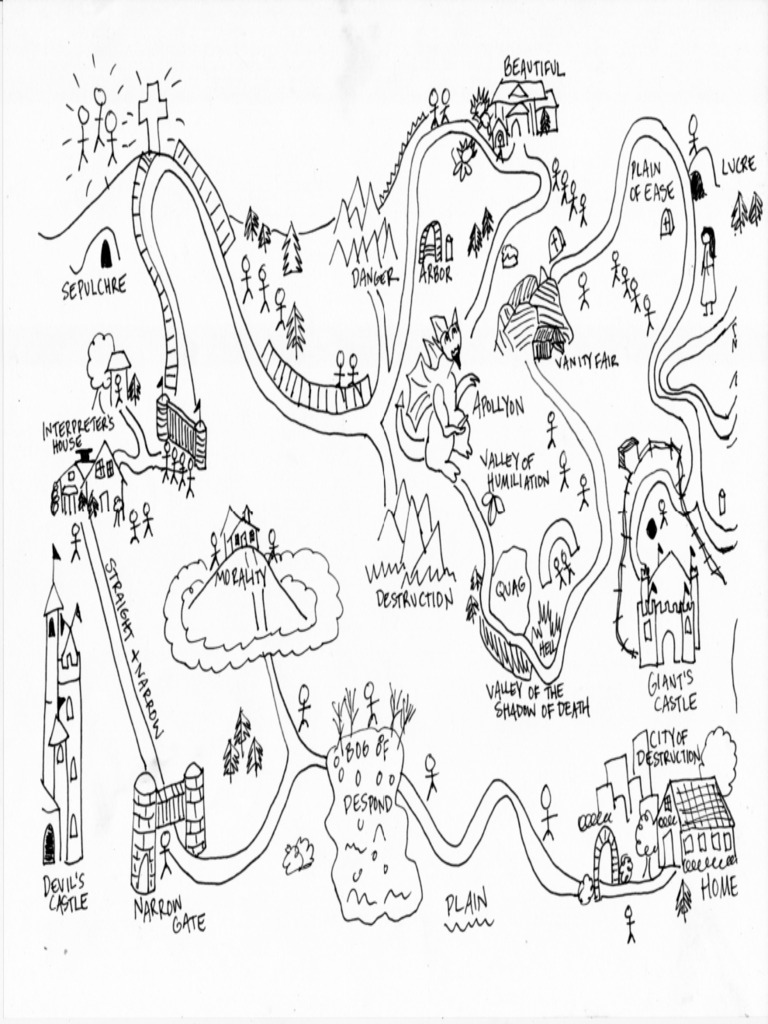 BEAUTIFUL
PLAIN
OF EASE
LUCRE
SEPULCHRE
DANGER
ARBOR
VANITY FAIR
APOLLYON
INTERPRETER'S
HOUSE
VALLEY OF
HUMILIATION
MORALITY
DESTRUCTION
QUAG
HELL
STRAIGHT & NARROW
VALLEY OF THE
SHADOW OF DEATH
GIANT'S
CASTLE
CITY OF
DESTRUCTION
BOG OF
DESPOND
DEVIL'S
CASTLE
NARROW
GATE
PLAIN
HOME